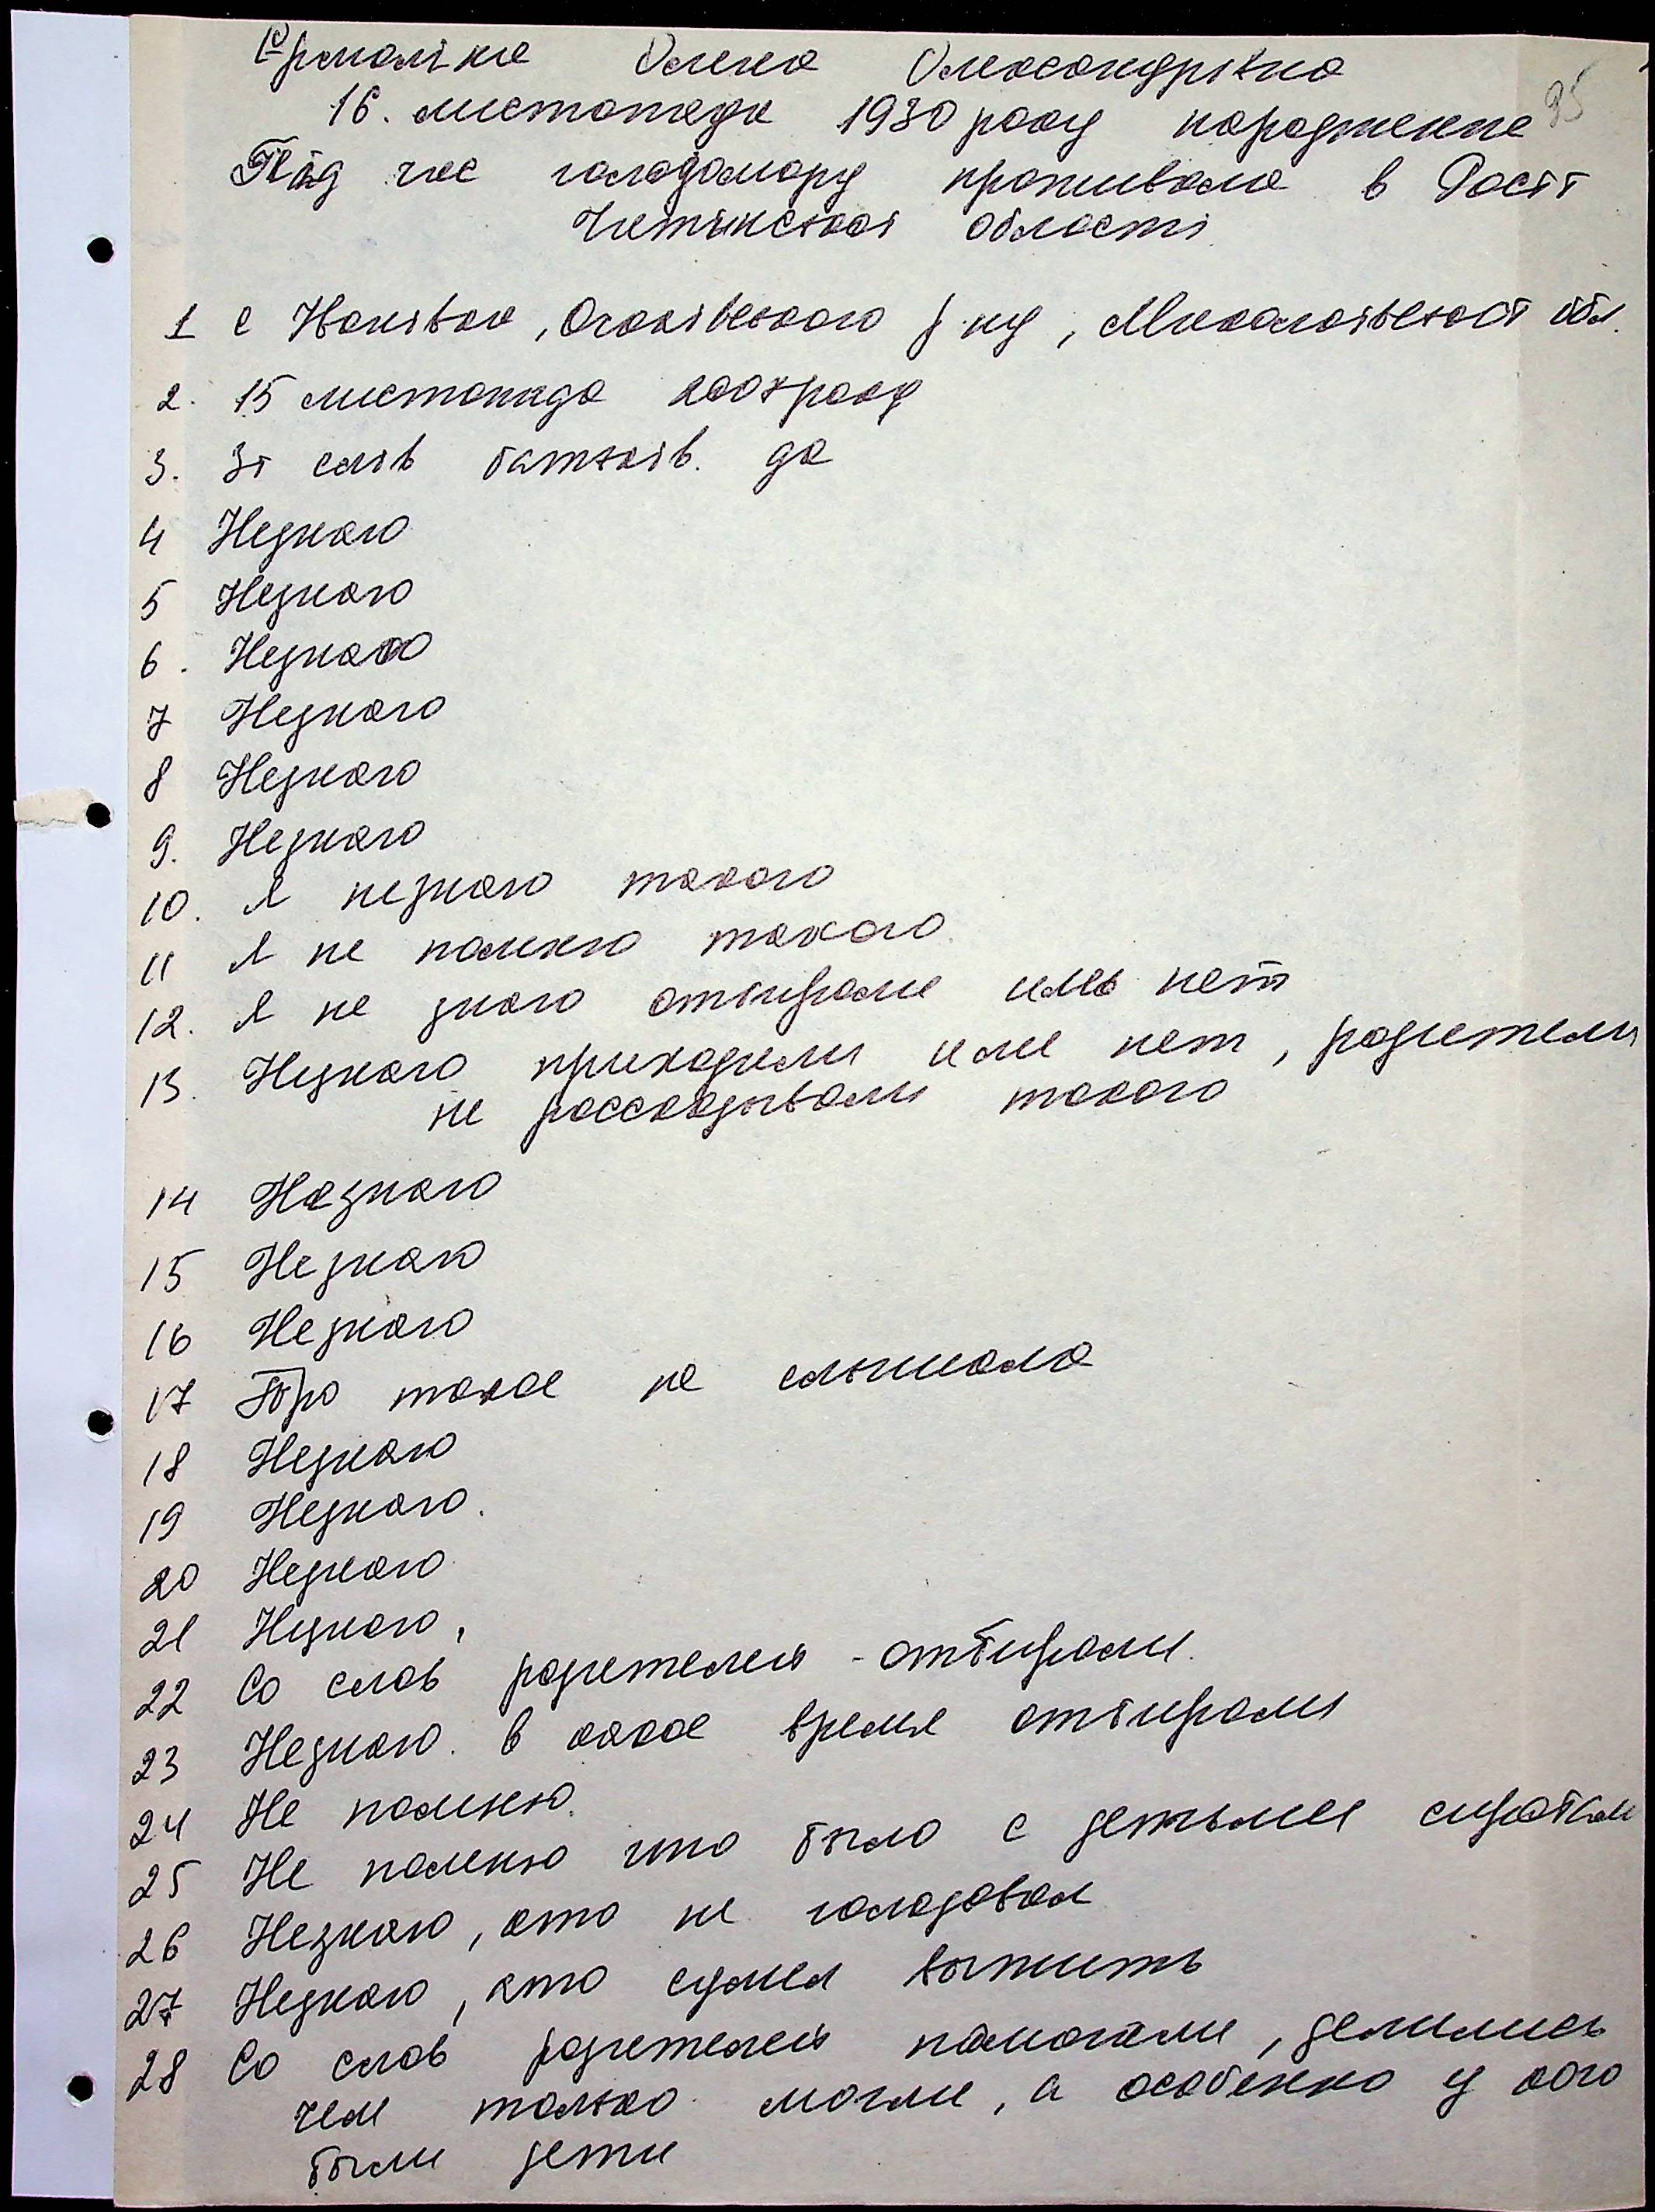 Єрмольчке Олена Олександрівна
95
16. листопада 1930 року народження
Під час голодомору проживала в Росії
Читинской області
1 с Іванівка, Очаківського р-ну, Миколаївської обл.
2. 15 листопада 2007 року
3. Зі слів батьків. да
4 Незнаю
5 Незнаю
6. Незнаю
7 Незнаю
8 Незнаю
9. Незнаю
10. Я незнаю такого
11 Я не помню такого.
12. Я не знаю отбирали или нет
13. Незнаю приходили или нет, родители
не рассказывали такого
14 Незнаю
15 Незнаю
16 Незнаю
17 Про такое не слышала
18 Незнаю
19 Незнаю.
20 Незнаю.
21 Незнаю,
22 Со слов родителей - отбирали.
23 Незнаю. в какое время отбирали
24 Не помню.
25 Не помню што было с детьми сиротами
26 Незнаю, кто не голодовал
27 Незнаю, кто сумел выжить
28 Со слов родителей помогали, делились
чем только могли, а особенно у кого
были дети